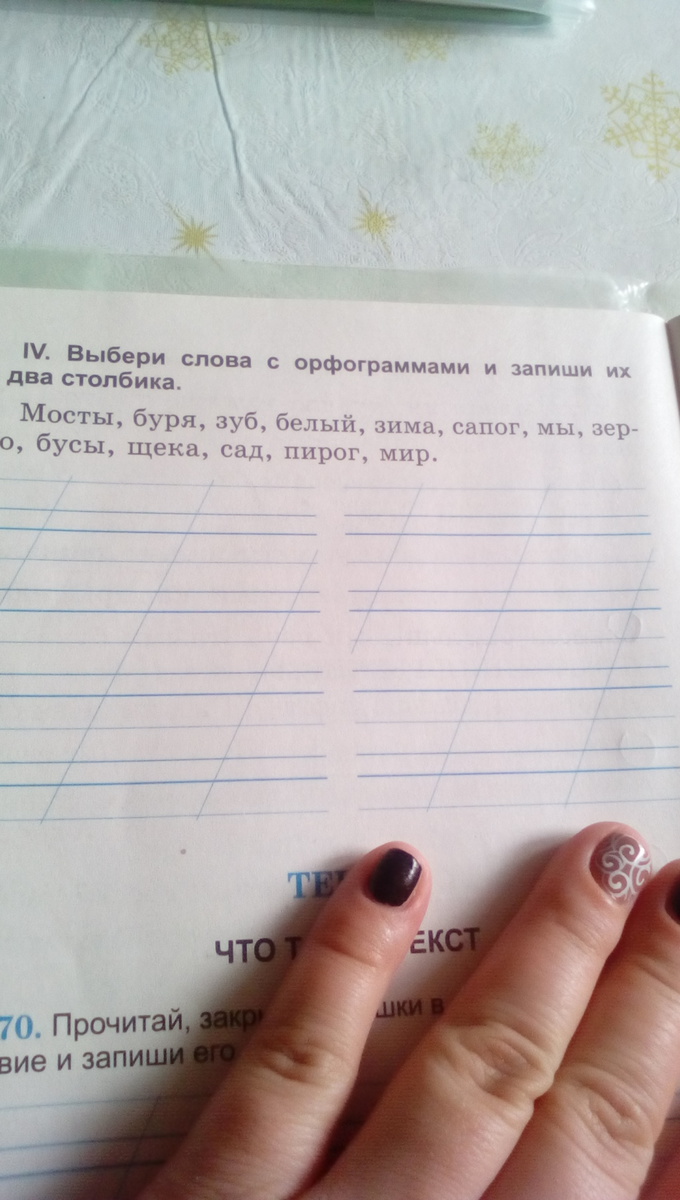 IV. Выбери слова с орфограммами и запиши их
два столбика.
Мосты, буря, зуб, белый, зима, сапог, мы, зер-
о, бусы, щека, сад, пирог, мир.
ЧТО
70. Прочитай,
вие и запиши его